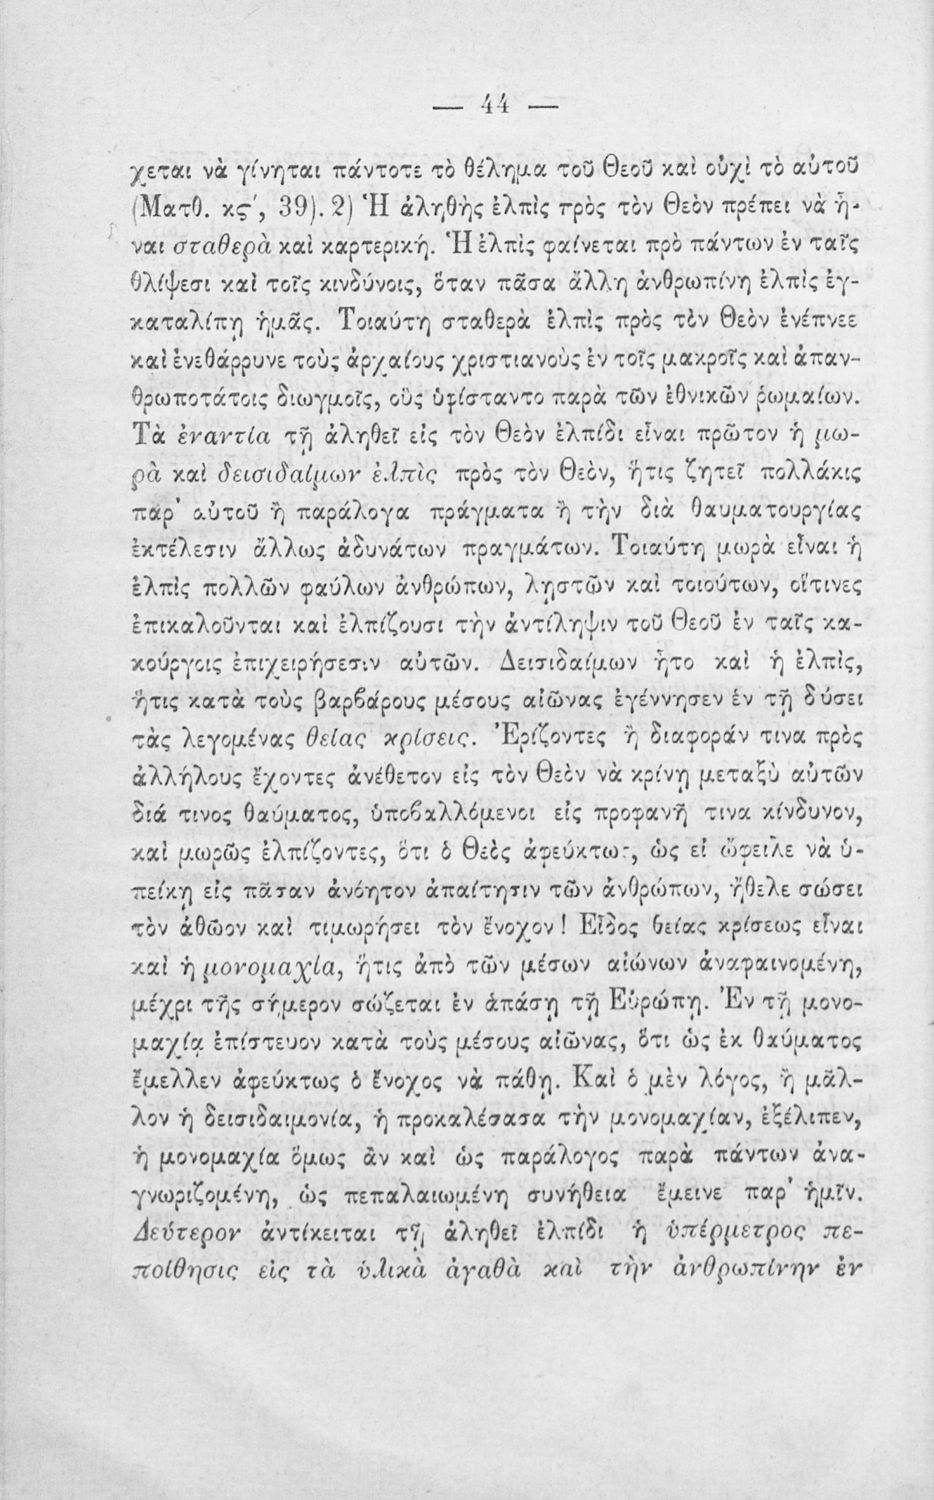 — 44 —
χεται νὰ γίνηται πάντοτε τὸ θέλημα τοῦ Θεοῦ καὶ οὐχὶ τὸ αὑτοῦ
(Ματθ. κϛ', 39). 2) Ἡ ἀληθὴς ἐλπὶς πρὸς τὸν Θεὸν πρέπει νὰ ἦ-
ναι σταθερὰ καὶ καρτερική. Ἡ ἐλπὶς φαίνεται πρὸ πάντων ἐν ταῖς
θλίψεσι καὶ τοῖς κινδύνοις, ὅταν πᾶσα ἄλλη ἀνθρωπίνη ἐλπὶς ἐγ-
καταλίπῃ ἡμᾶς. Τοιαύτη σταθερὰ ἐλπὶς πρὸς τὸν Θεὸν ἐνέπνεε
καὶ ἐνεθάρρυνε τοὺς ἀρχαίους χριστιανοὺς ἐν τοῖς μακροῖς καὶ ἀπαν-
θρωποτάτοις διωγμοῖς, οὓς ὑφίσταντο παρὰ τῶν ἐθνικῶν ῥωμαίων.
Τὰ ἐναντία τῇ ἀληθεῖ εἰς τὸν Θεὸν ἐλπίδι εἶναι πρῶτον ἡ μω-
ρὰ καὶ δεισιδαίμων ἐλπὶς πρὸς τὸν Θεὸν, ἥτις ζητεῖ πολλάκις
παρ' αὐτοῦ ἢ παράλογα πράγματα ἢ τὴν διὰ θαυματουργίας
ἐκτέλεσιν ἄλλως ἀδυνάτων πραγμάτων. Τοιαύτη μωρὰ εἶναι ἡ
ἐλπὶς πολλῶν φαύλων ἀνθρώπων, λῃστῶν καὶ τοιούτων, οἵτινες
ἐπικαλοῦνται καὶ ἐλπίζουσι τὴν ἀντίληψιν τοῦ Θεοῦ ἐν ταῖς κα-
κούργοις ἐπιχειρήσεσιν αὐτῶν. Δεισιδαίμων ἦτο καὶ ἡ ἐλπὶς,
ἥτις κατὰ τοὺς βαρβάρους μέσους αἰῶνας ἐγέννησεν ἐν τῇ δύσει
τὰς λεγομένας θείας κρίσεις. Ἐρίζοντες ἢ διαφοράν τινα πρὸς
ἀλλήλους ἔχοντες ἀνέθετον εἰς τὸν Θεὸν νὰ κρίνῃ μεταξὺ αὐτῶν
διά τινος θαύματος, ὑποβαλλόμενοι εἰς προφανῆ τινα κίνδυνον,
καὶ μωρῶς ἐλπίζοντες, ὅτι ὁ Θεὸς ἀφεύκτως, ὡς εἰ ὤφειλε νὰ ὑ-
πείκῃ εἰς πᾶσαν ἀνόητον ἀπαίτησιν τῶν ἀνθρώπων, ἤθελε σώσει
τὸν ἀθῶον καὶ τιμωρήσει τὸν ἔνοχον! Εἶδος θείας κρίσεως εἶναι
καὶ ἡ μονομαχία, ἥτις ἀπὸ τῶν μέσων αἰώνων ἀναφαινομένη,
μέχρι τῆς σήμερον σώζεται ἐν ἁπάσῃ τῇ Εὐρώπῃ. Ἐν τῇ μονο-
μαχίᾳ ἐπίστευον κατὰ τοὺς μέσους αἰῶνας, ὅτι ὡς ἐκ θαύματος
ἔμελλεν ἀφεύκτως ὁ ἔνοχος νὰ πάθῃ. Καὶ ὁ μὲν λόγος, ἢ μᾶλ-
λον ἡ δεισιδαιμονία, ἡ προκαλέσασα τὴν μονομαχίαν, ἐξέλιπεν,
ἡ μονομαχία ὅμως ἂν καὶ ὡς παράλογος παρὰ πάντων ἀνα-
γνωριζομένη, ὡς πεπαλαιωμένη συνήθεια ἔμεινε παρ' ἡμῖν.
Δεύτερον ἀντίκειται τῇ ἀληθεῖ ἐλπίδι ἡ ὑπέρμετρος πε-
ποίθησις εἰς τὰ ὑλικὰ ἀγαθὰ καὶ τὴν ἀνθρωπίνην ἐν